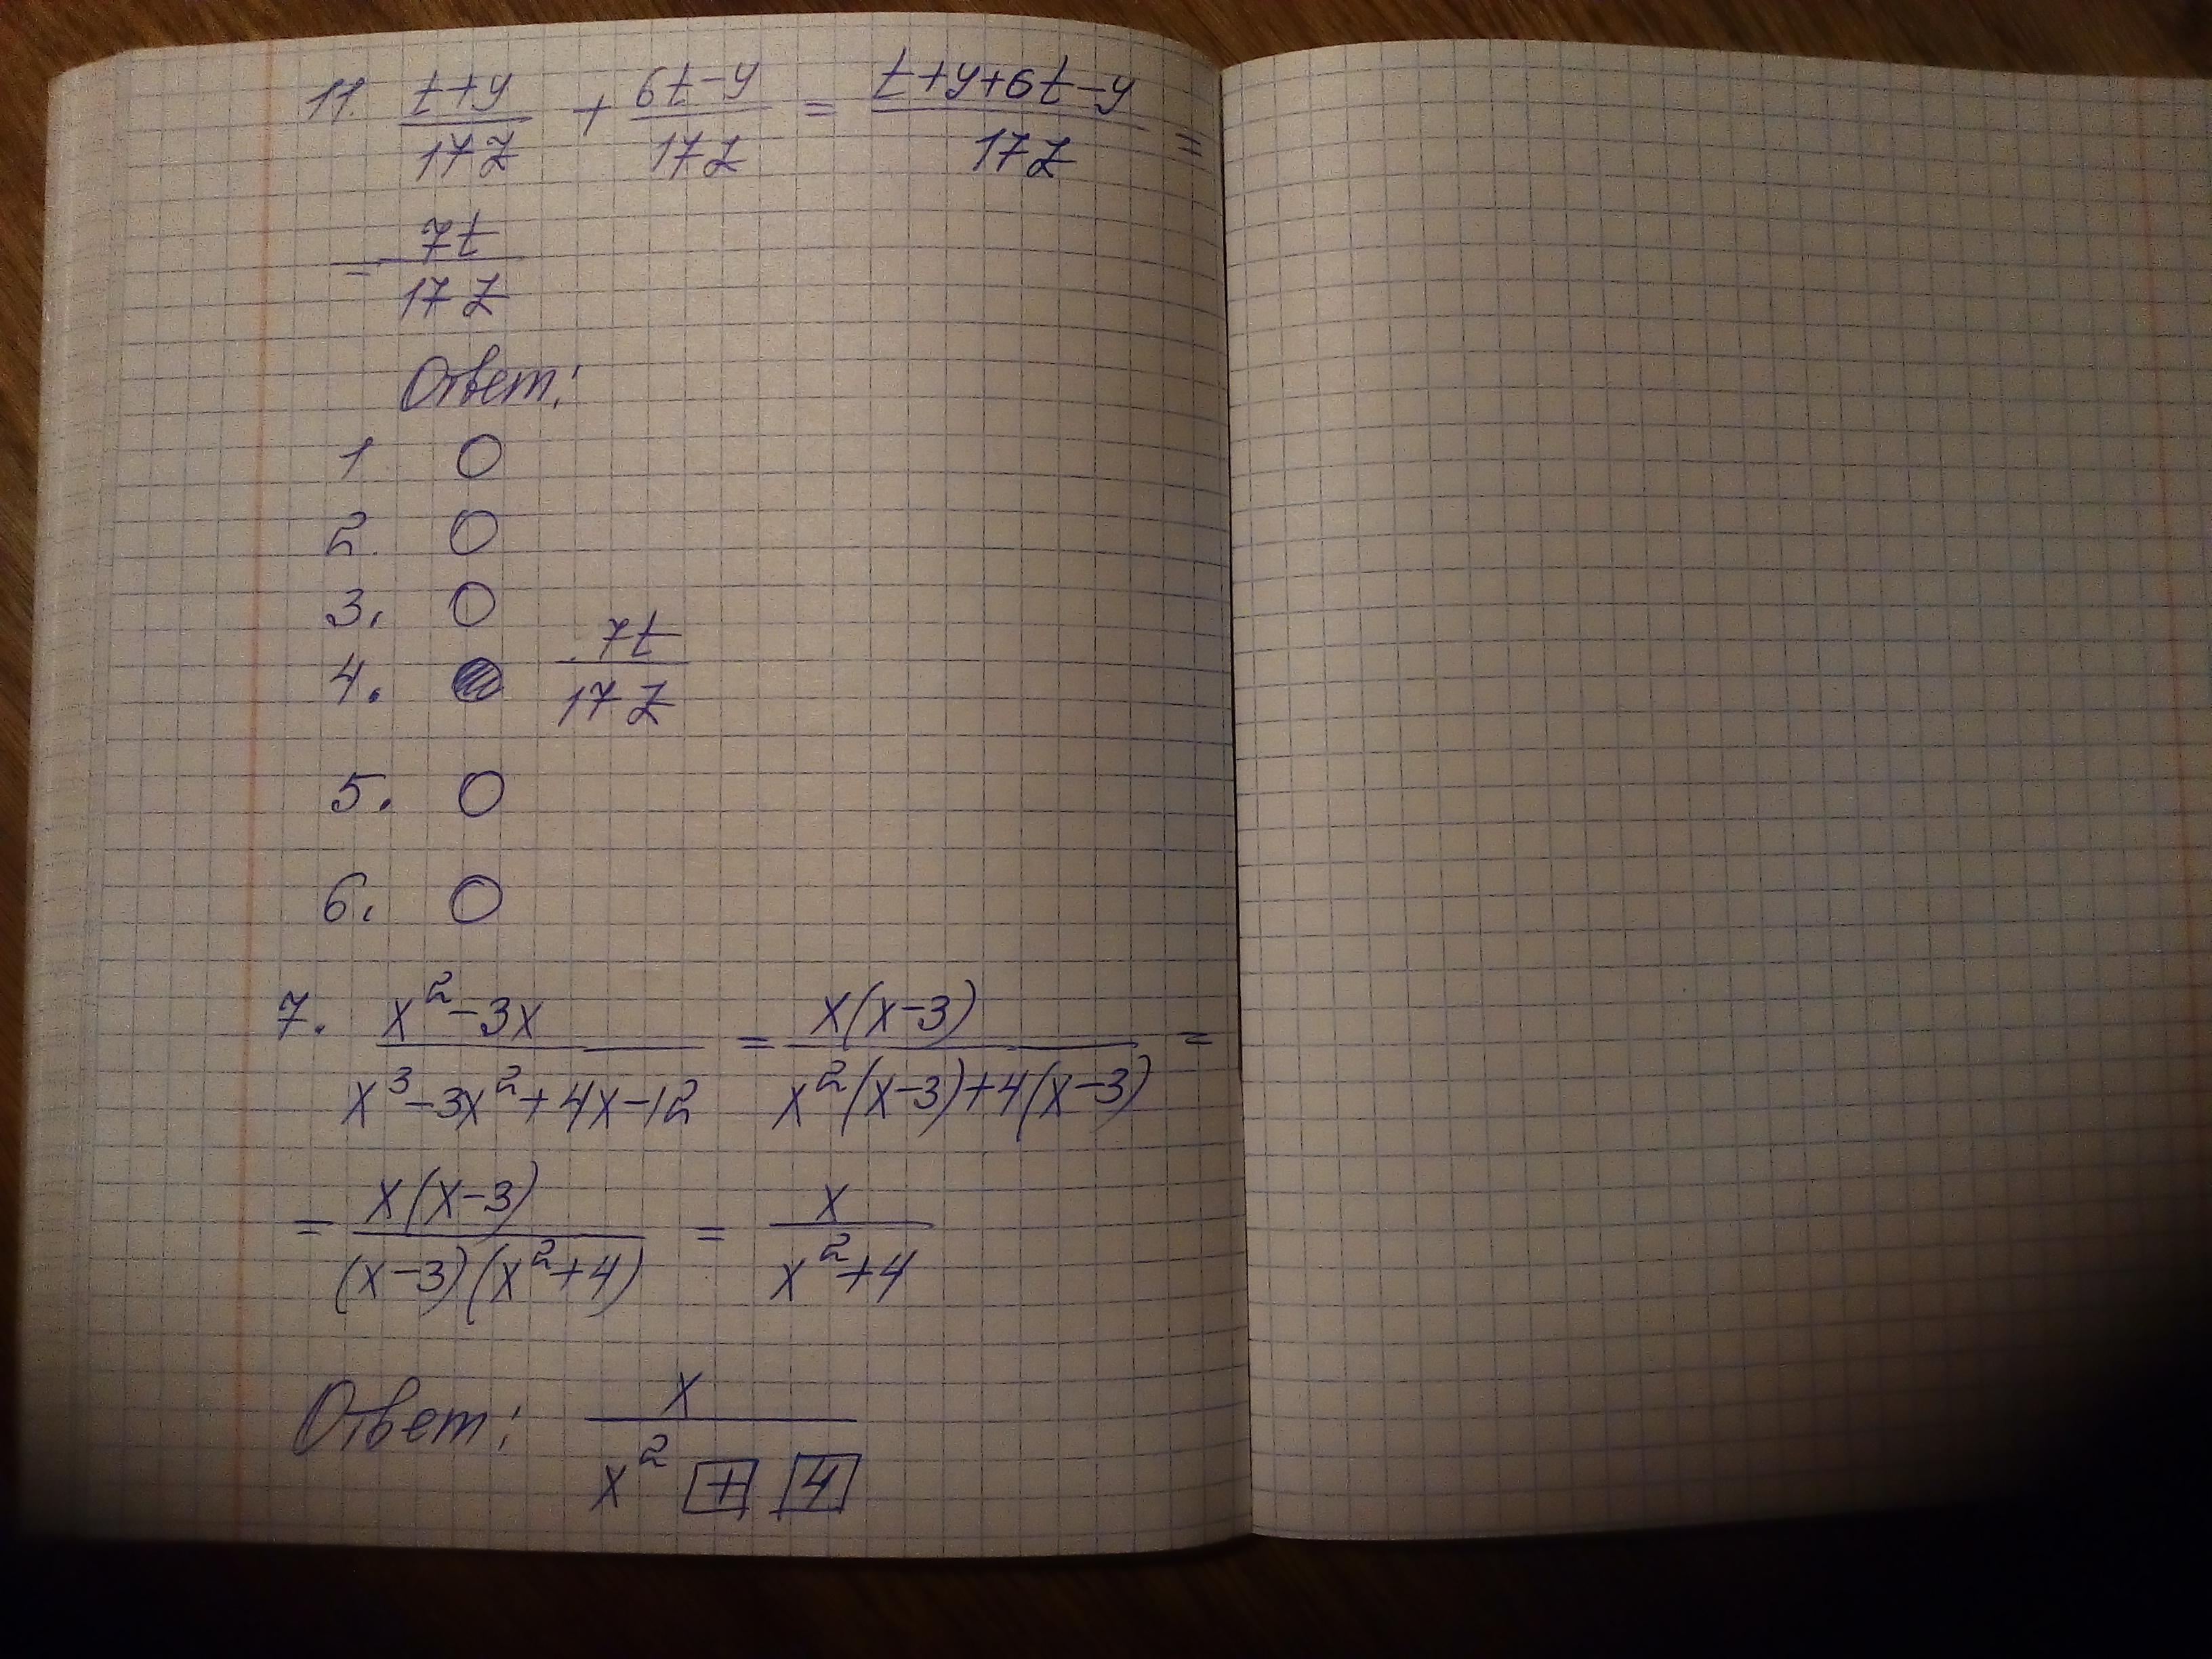 11. (t+y)/(17z) + (6t-y)/(17z) = (t+y+6t-y)/(17z) =
= (7t)/(17z)
Ответ:
1 ○
2. ○
3. ○
4. ● (7t)/(17z)
5. ○
6. ○
7. (x²-3x)/(x³-3x²+4x-12) = (x(x-3))/(x²(x-3)+4(x-3)) =
= (x(x-3))/((x-3)(x²+4)) = x/(x²+4)
Ответ: x/(x² [+] [4])